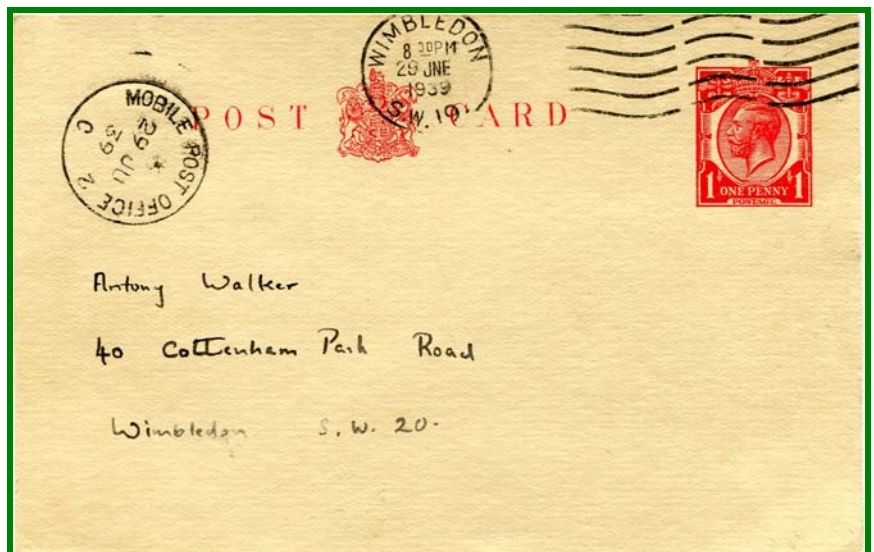 WIMBLEDON
8 30PM
29 JNE
1939
S.W.19.
MOBILE POST OFFICE 2
C
29 JU
39
POST CARD
1 ONE PENNY 1
POSTAGE
Antony Walker
40 Cottenham Park Road
Wimbledon S.W. 20.